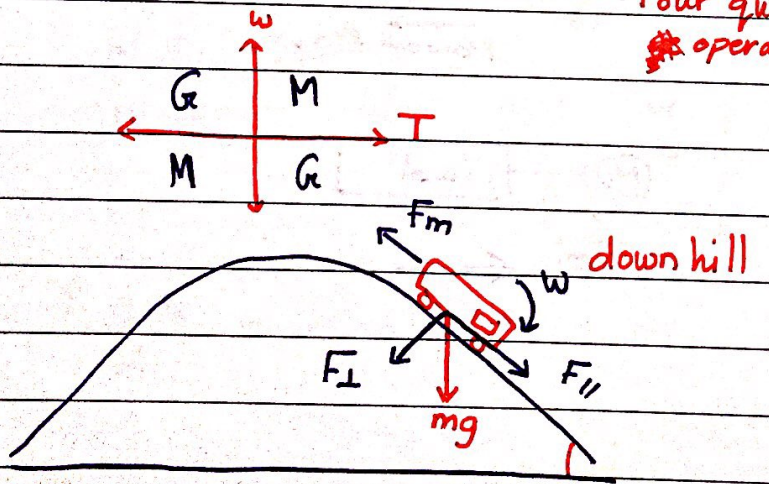 Four
opera
w
G M
T
M G
Fm
down hill
w
F⊥
F//
mg